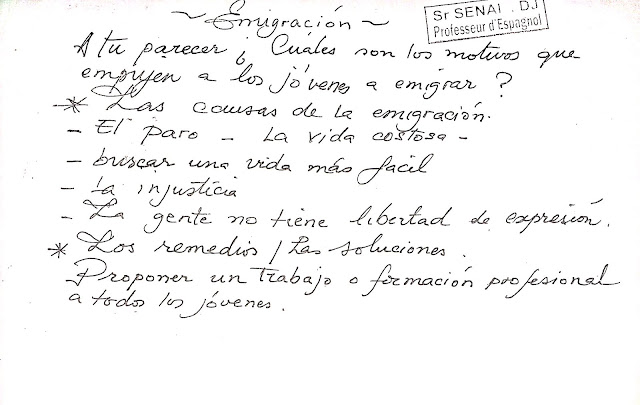 ~ Emigración ~
Sr SENAI . DJ
Professeur d'Espagnol
A tu parecer ¿ Cuáles son los motivos que
empujen a los jóvenes a emigrar ?
* Las causas de la emigración.
- El paro - La vida costosa -
- buscar una vida más facil
- la injusticia
- La gente no tiene libertad de expresión.
* Los remedios / Las soluciones.
Proponer un trabajo o formación profesional
a todos los jóvenes.